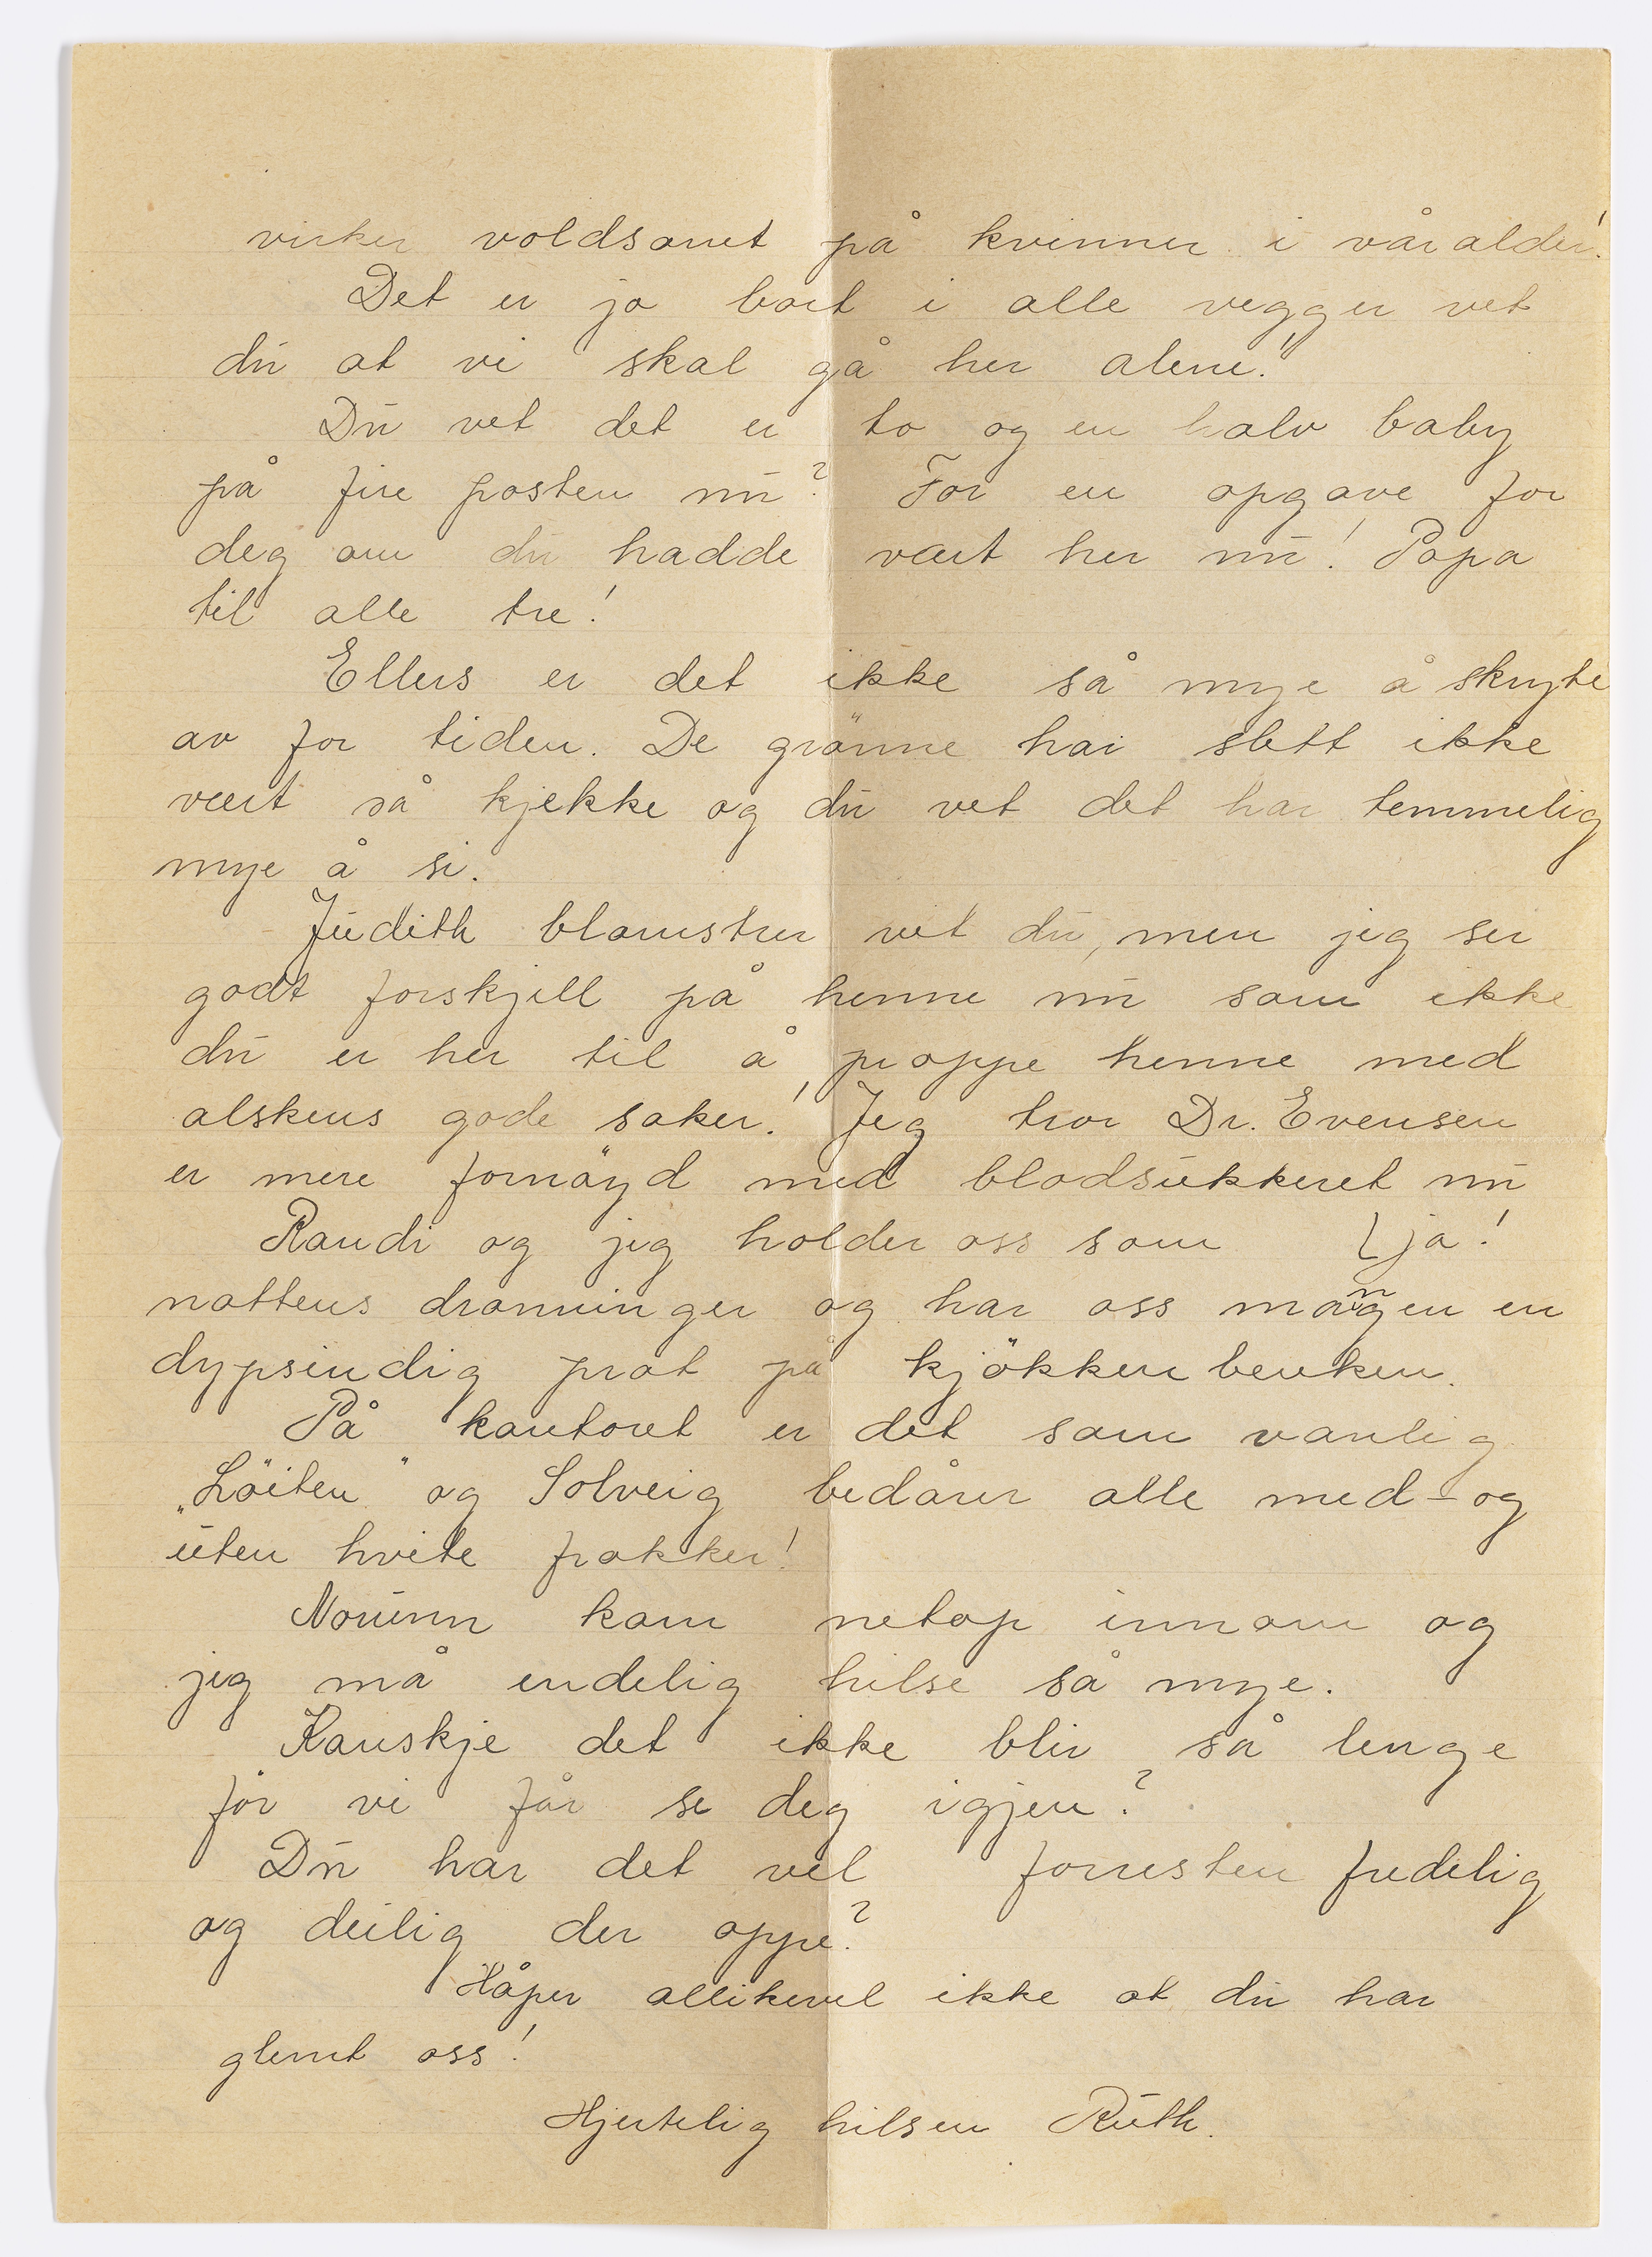 virker voldsomt på kvinner i vår alder!
Det er jo bort i alle vegger vet
du at vi skal gå her alene!
Du vet det er to og en halv baby
på fire posten nu? For en opgave for
deg om du hadde vært her nu! Papa
til alle tre!
Ellers er det ikke så mye å skryte
av for tiden. De grönne har slett ikke
vært så kjekke og du vet det har temmelig
mye å si.
Judith blomstrer vet du, men jeg ser
godt forskjell på henne nu som ikke
du er her til å proppe henne med
alskens gode saker! Jeg tror Dr. Evensen
er mere fornöyd med blodsukkeret nu
Randi og jeg holder oss som ja!
nattens dronninger og har oss mangen en
dypsindig prat på kjökkenbenken.
På kontoret er det som vanlig
„Löiten" og Solveig bedårer alle med- og
uten hvite frakker!
Nounn kom netop innom og
jeg må endelig hilse så mye.
Kanskje det ikke blir så lenge
för vi får se deg igjen?
Du har det vel forresten fredelig
og deilig der oppe?
Håper allikevel ikke at du har
glemt oss!
Hjertelig hilsen Ruth.